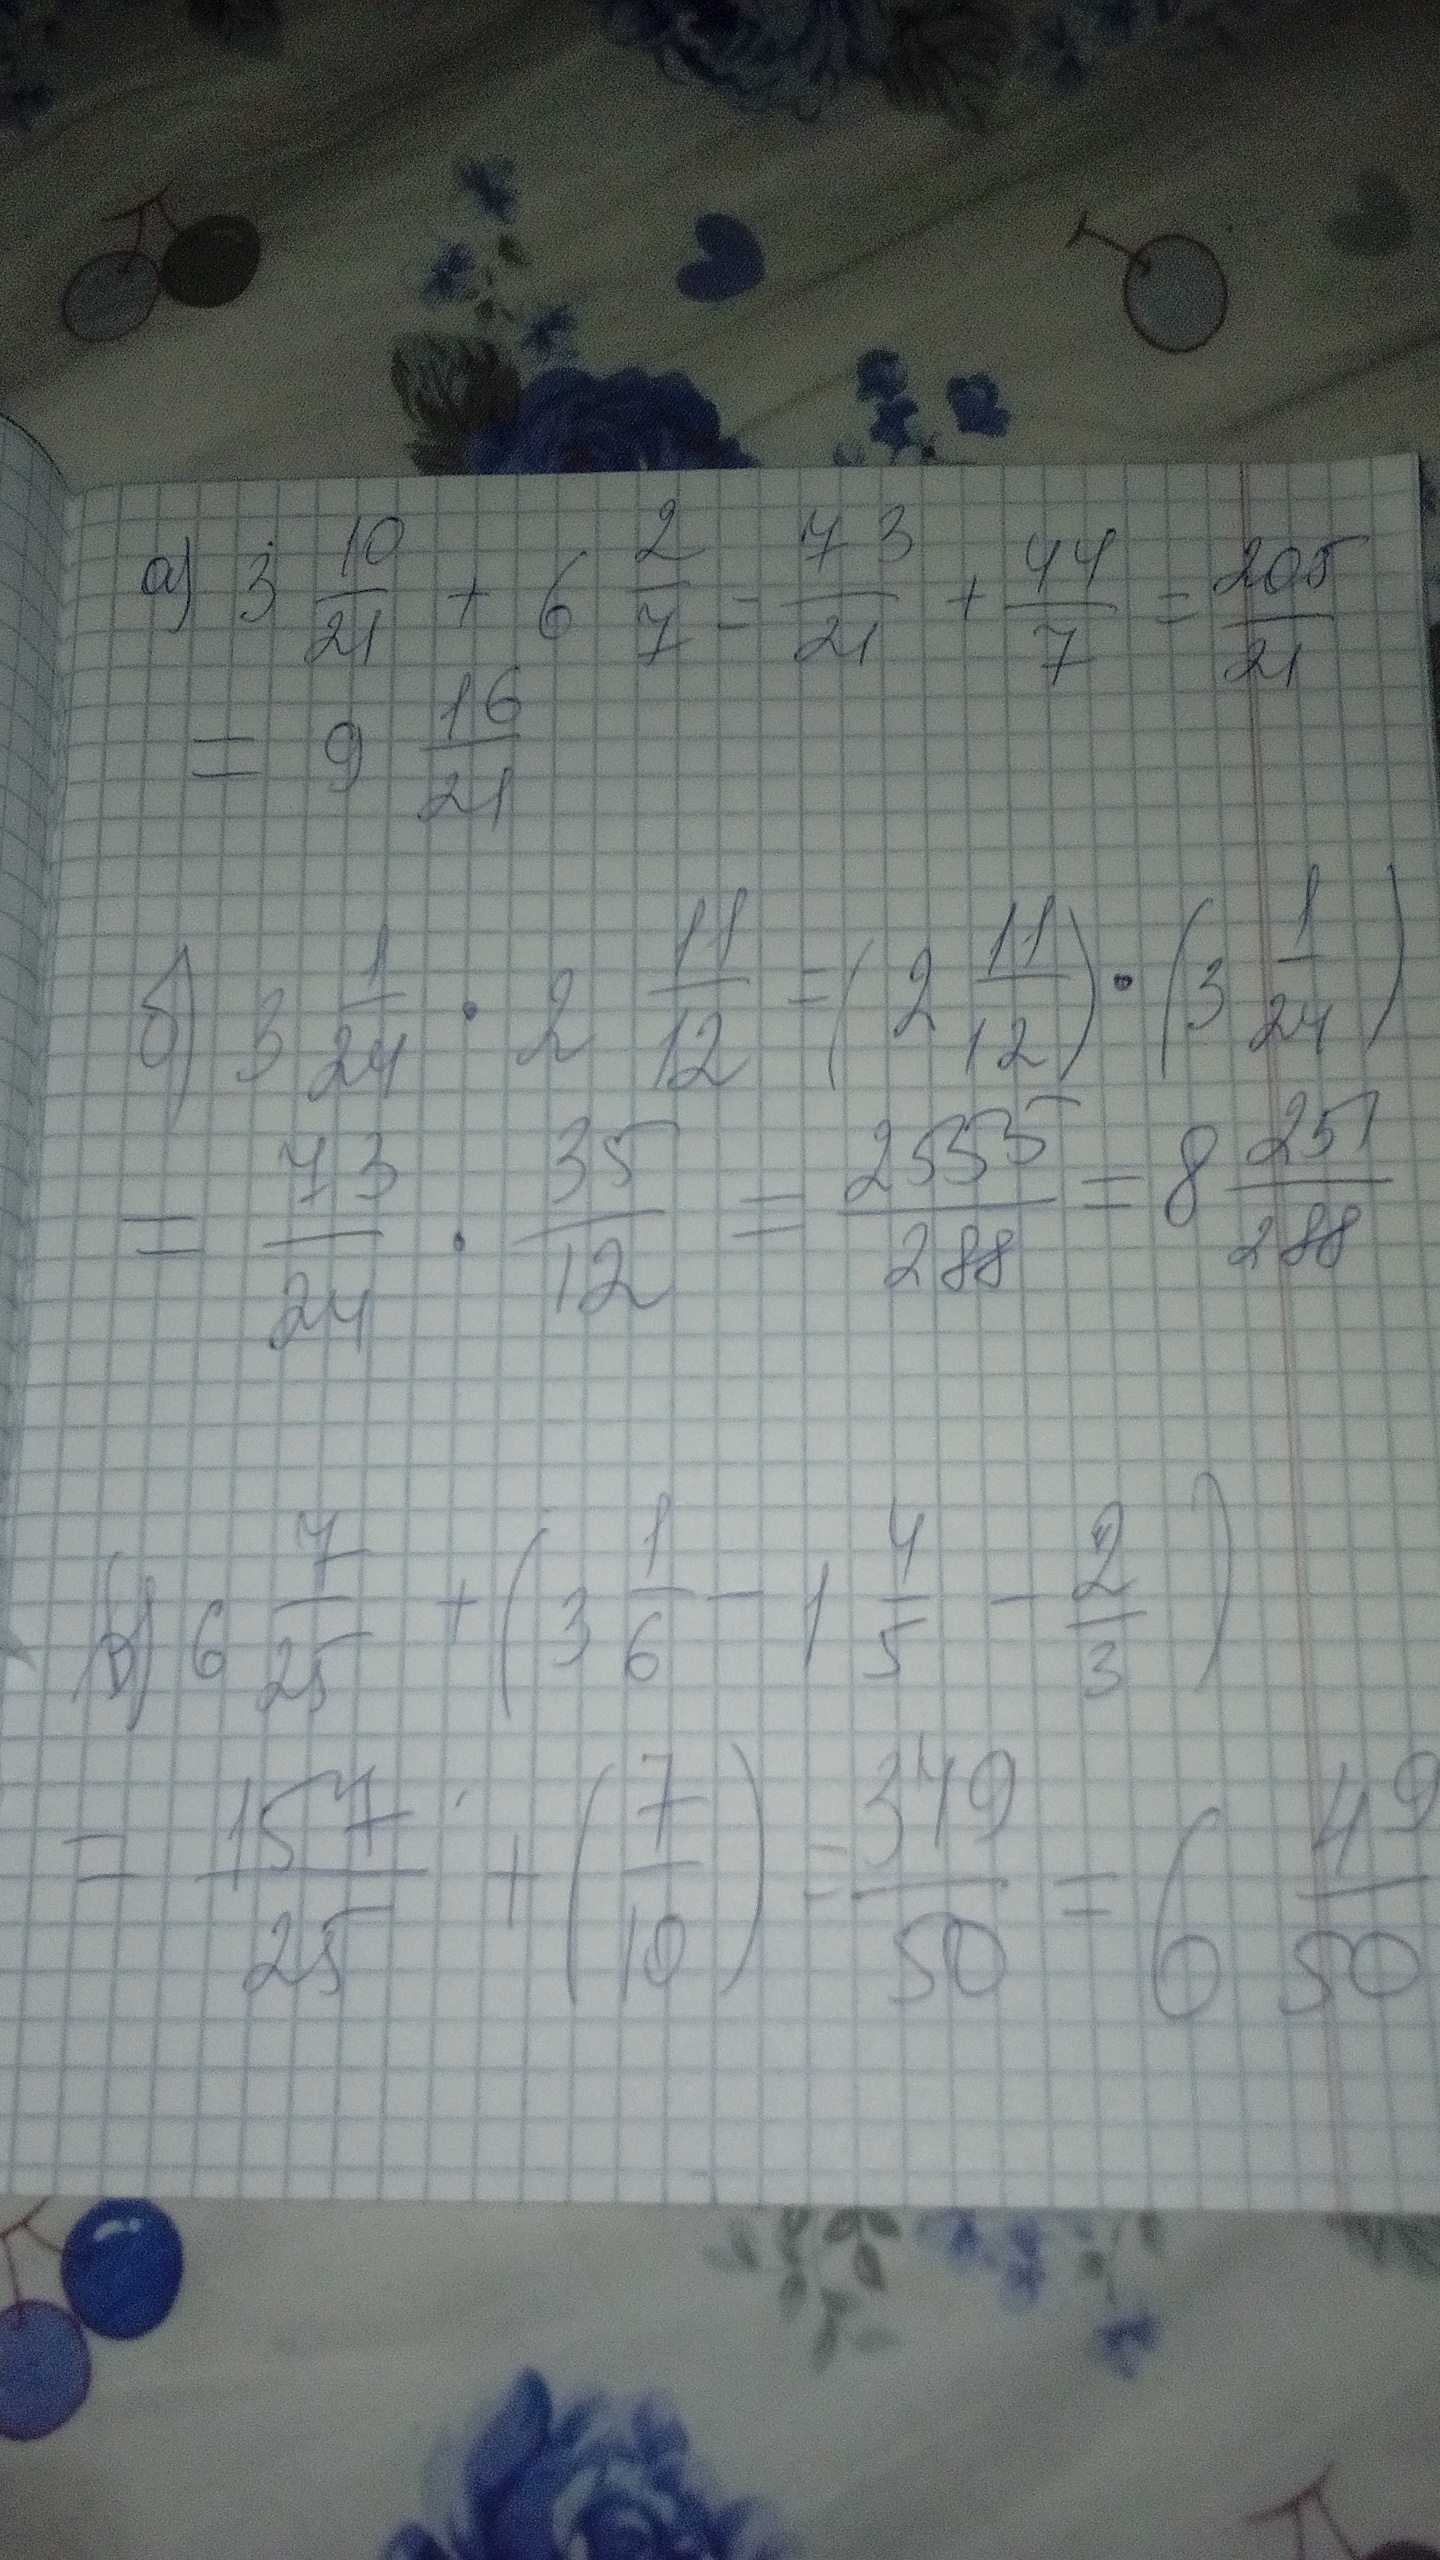 а) 3 10/21 + 6 2/7 = 73/21 + 44/7 = 205/21
= 9 16/21
б) 3 1/24 · 2 11/12 = (2 11/12) · (3 1/24)
= 73/24 · 35/12 = 2555/288 = 8 251/288
в) 6 7/25 + (3 1/6 - 1 4/5 - 2/3)
= 157/25 + (7/10) = 349/50 = 6 49/50